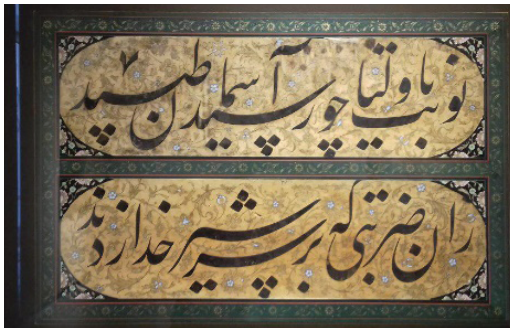 نوبت باولیا چو رسید آسمان طپید
زان ضربتی که بر سر شیر خدا زدند